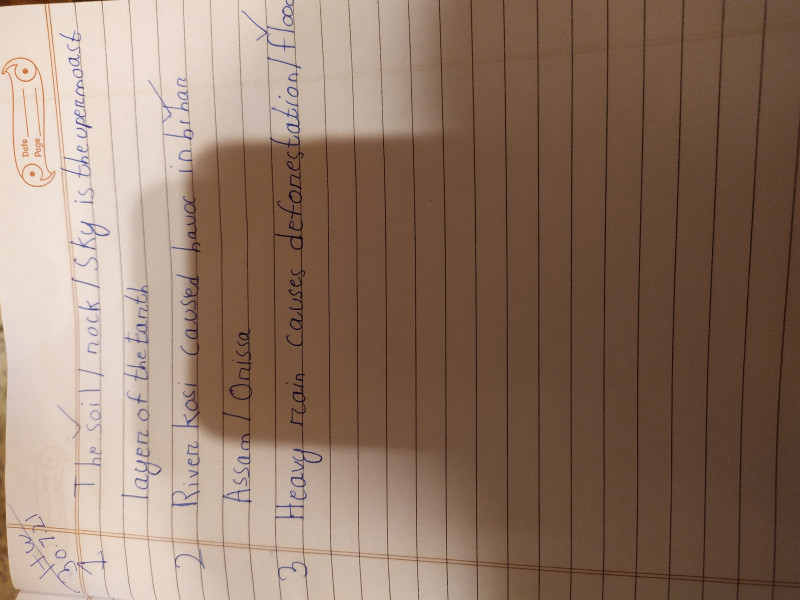 Date
Page
H.W
30.12
1. The soil / rock / Sky is the upermoast
layer of the Earth
2 River kosi caused havoc in bihar
Assam / Orissa
3 Heavy rain causes deforestation / floo